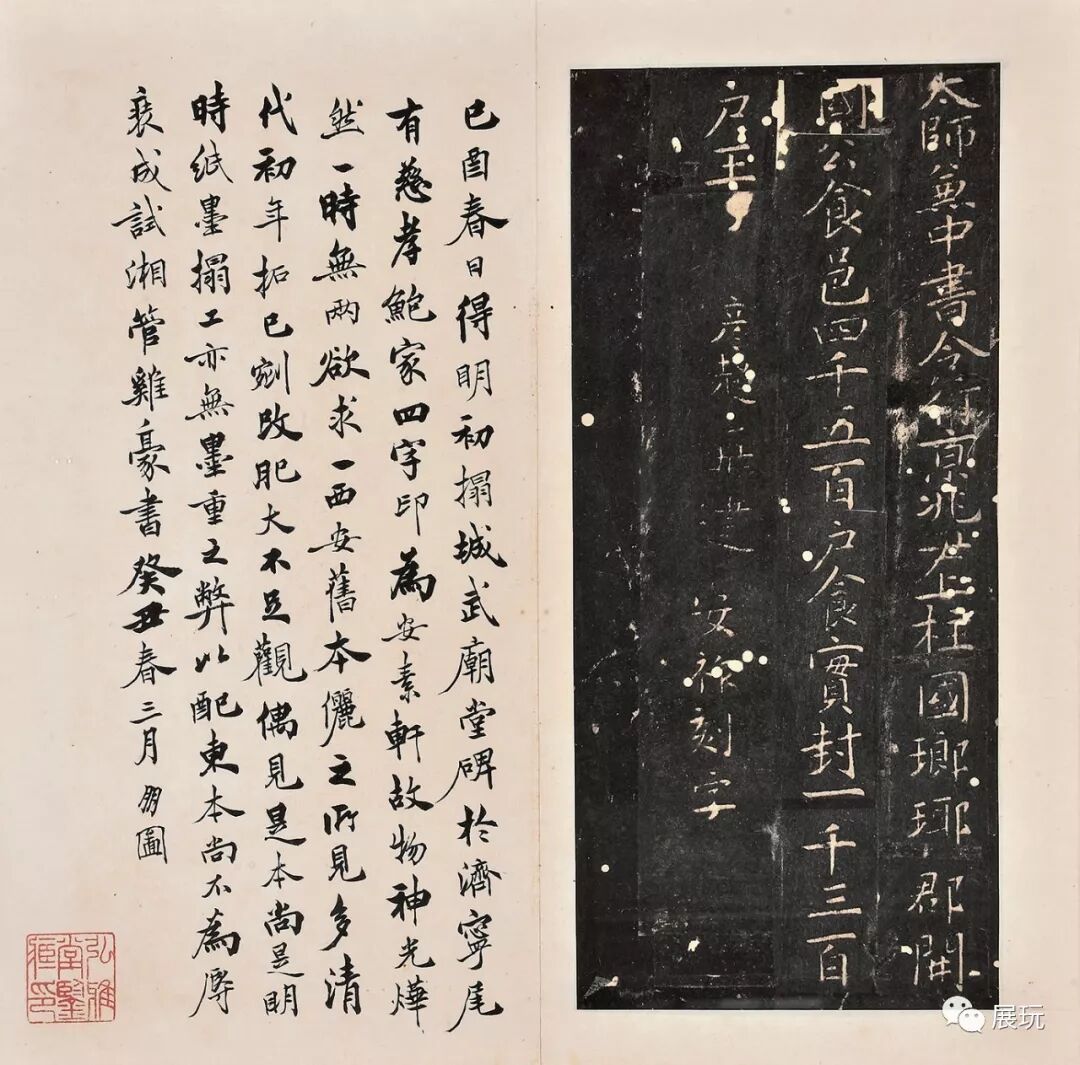 太師兼中書令行京兆尹上柱國瑯琊郡開
國公食邑四千五百户食實封一千三百
户王彥超再建 安祚刻字
己酉春日得明初搨城武廟堂碑於濟寧尾
有慈孝鮑家四字印為安素軒故物神光燁
然一時無兩欲求一西安舊本儷之所見多清
代初年拓已剜改肥大不足觀偶見是本尚是明
時紙墨搨工亦無墨重之弊以配東本尚不為辱
裝成試湘管雞豪書癸丑春三月 朋圖
展玩